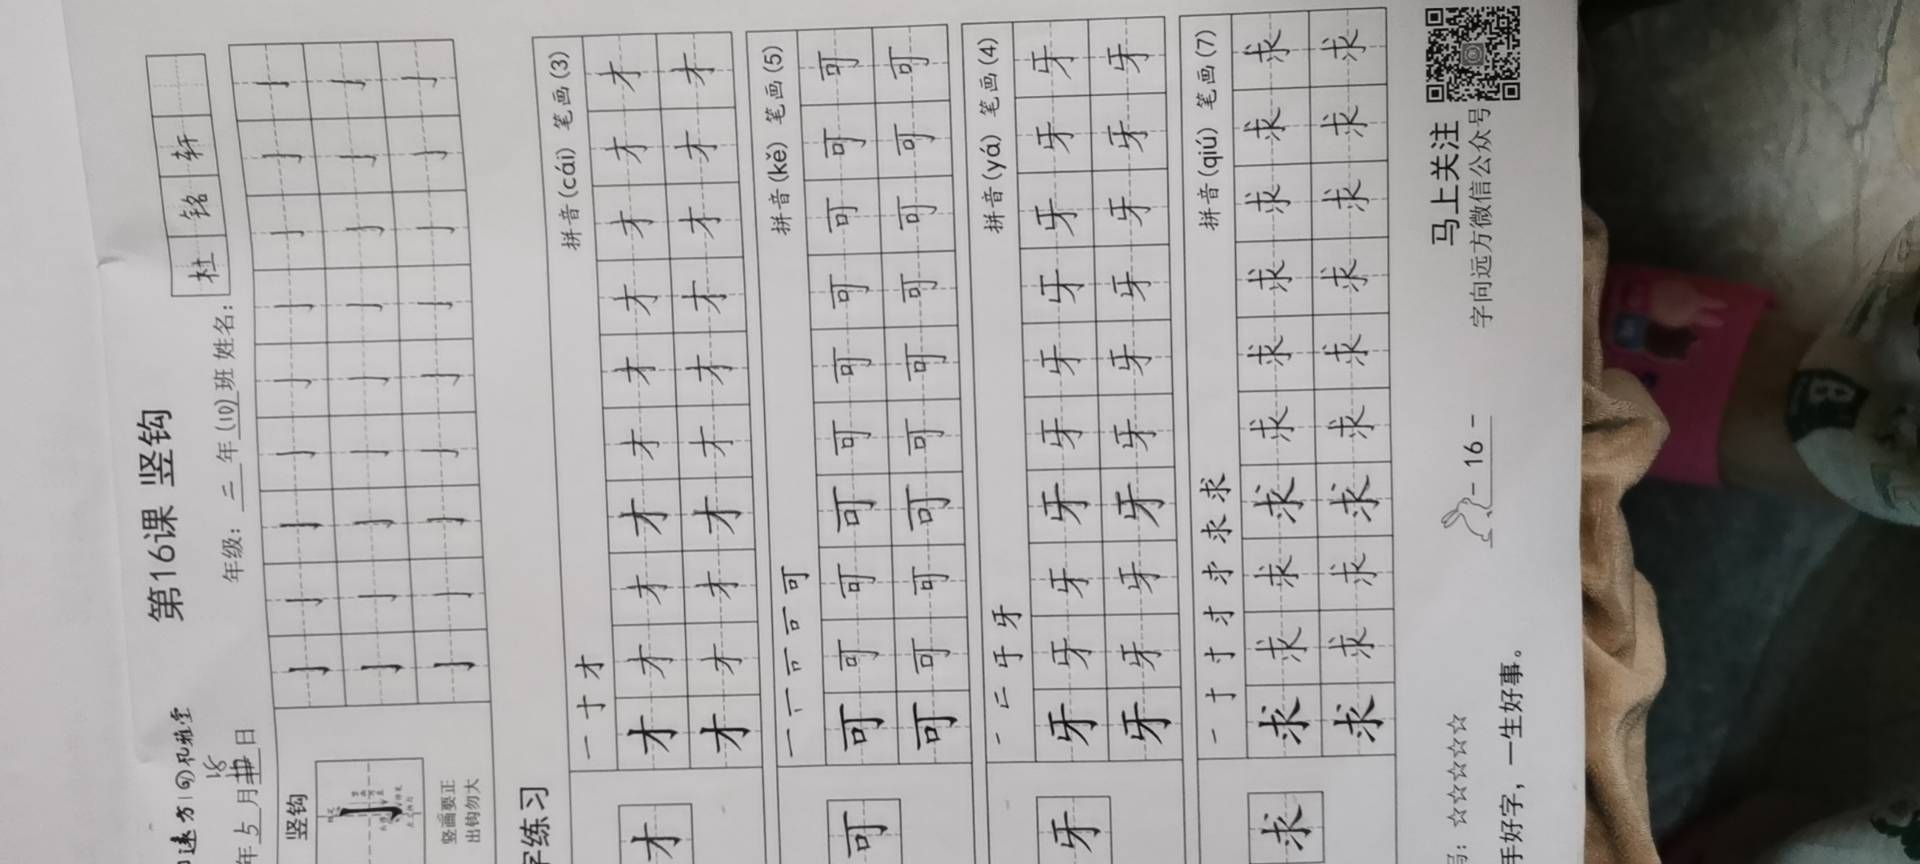 第16课 竖钩
年5月18日 年级：二年(10)班 姓名：杜铭轩
竖钩
亅亅亅亅亅亅亅亅亅
亅亅亅亅亅亅亅亅亅
亅亅亅亅亅亅亅亅亅
竖画要正
出钩勿大
字练习
拼音(cái) 笔画(3)
一 十 才
才
才才才才才才才才才才
才才才才才才才才才才
拼音(kě) 笔画(5)
可
可
可可可可可可可可可可
可可可可可可可可可可
拼音(yá) 笔画(4)
牙
牙
牙牙牙牙牙牙牙牙牙牙
牙牙牙牙牙牙牙牙牙牙
拼音(qiú) 笔画(7)
求 求
求
求求求求求求求求求求
求求求求求求求求求求
☆☆☆☆☆☆
- 16 -
马上关注
字向远方微信公众号
手好字，一生好事。